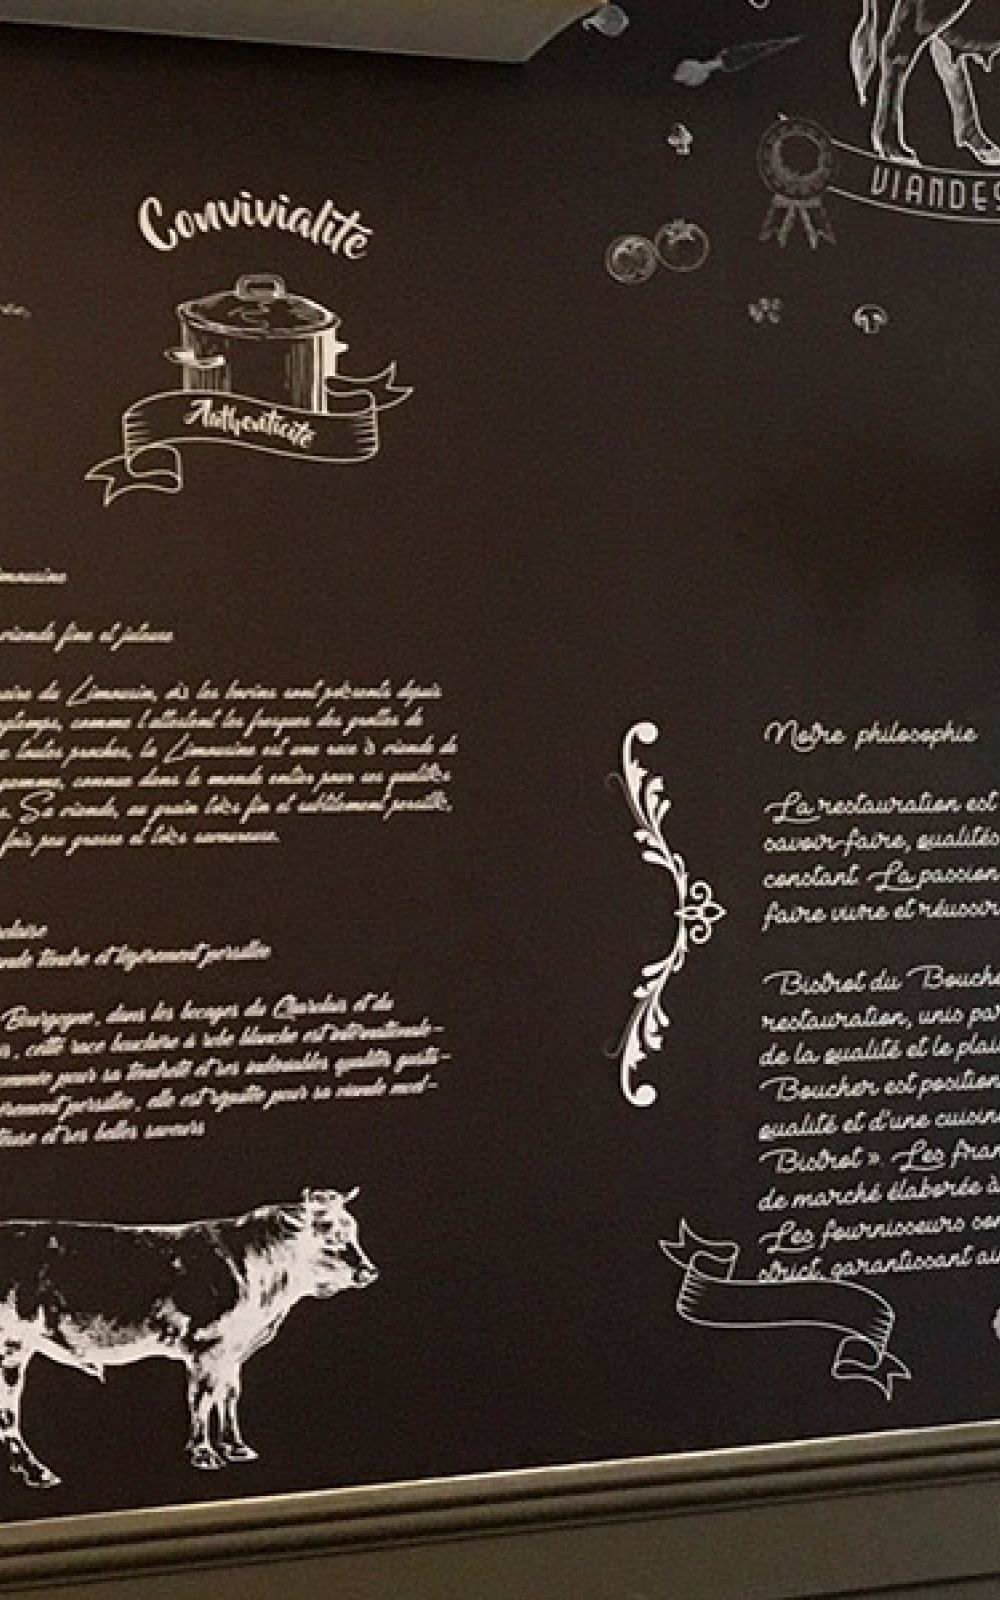 VIANDES
Convivialité
Authenticité
viande fine et juteuse
du Limousin, où les bovins sont présents depuis
comme l'attestent les fresques des grottes de
toutes proches, la Limousine est une race à viande de
gamme, connue dans le monde entier pour ses qualités
Sa viande, au grain très fin et subtilement persillé,
fois peu grasse et très savoureuse.
tendre et légèrement persillée
Bourgogne, dans les bocages du Charolais et du
cette race bouchère à robe blanche est
pour sa tendreté et ses indéniables qualités
persillée, elle est réputée pour sa viande
et ses belles saveurs
Notre philosophie
La restauration est
savoir-faire, qualités
constant. La passion
faire vivre et réussir
Bistrot du Bouche
restauration, unis pa
de la qualité et le plai
Boucher est position
qualité et d'une cuisine
Bistrot ». Les fran
de marché élaborée à
Les fournisseurs so
strict, garantissant au